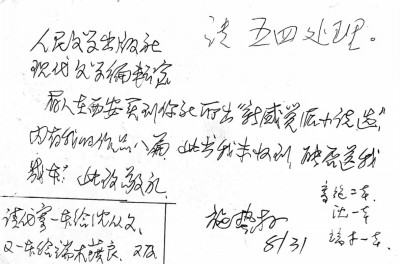 请五四处理。
人民文学出版社
现代文学编辑室
友人在西安买到你社所出"新感觉派小说选"，
内有我的作品八篇 此书我未收到，能否送我
几本？此致敬礼
施蛰存
8/31
请代寄一本给沈从文，
又一本给端木蕻良，又及
二本
沈一本
端木一本